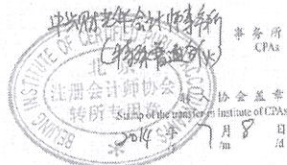 中兴财光华会计师事务所
事务所
CPAs
(特殊普通合伙)
BEIJING INSTITUTE OF CERTIFIED PUBLIC ACCOUNTANTS
北京
注册会计师协会
转所专用章
协会盖章
Stamp of the transfer-in Institute of CPAs
2014年7月8日
/y /m /d